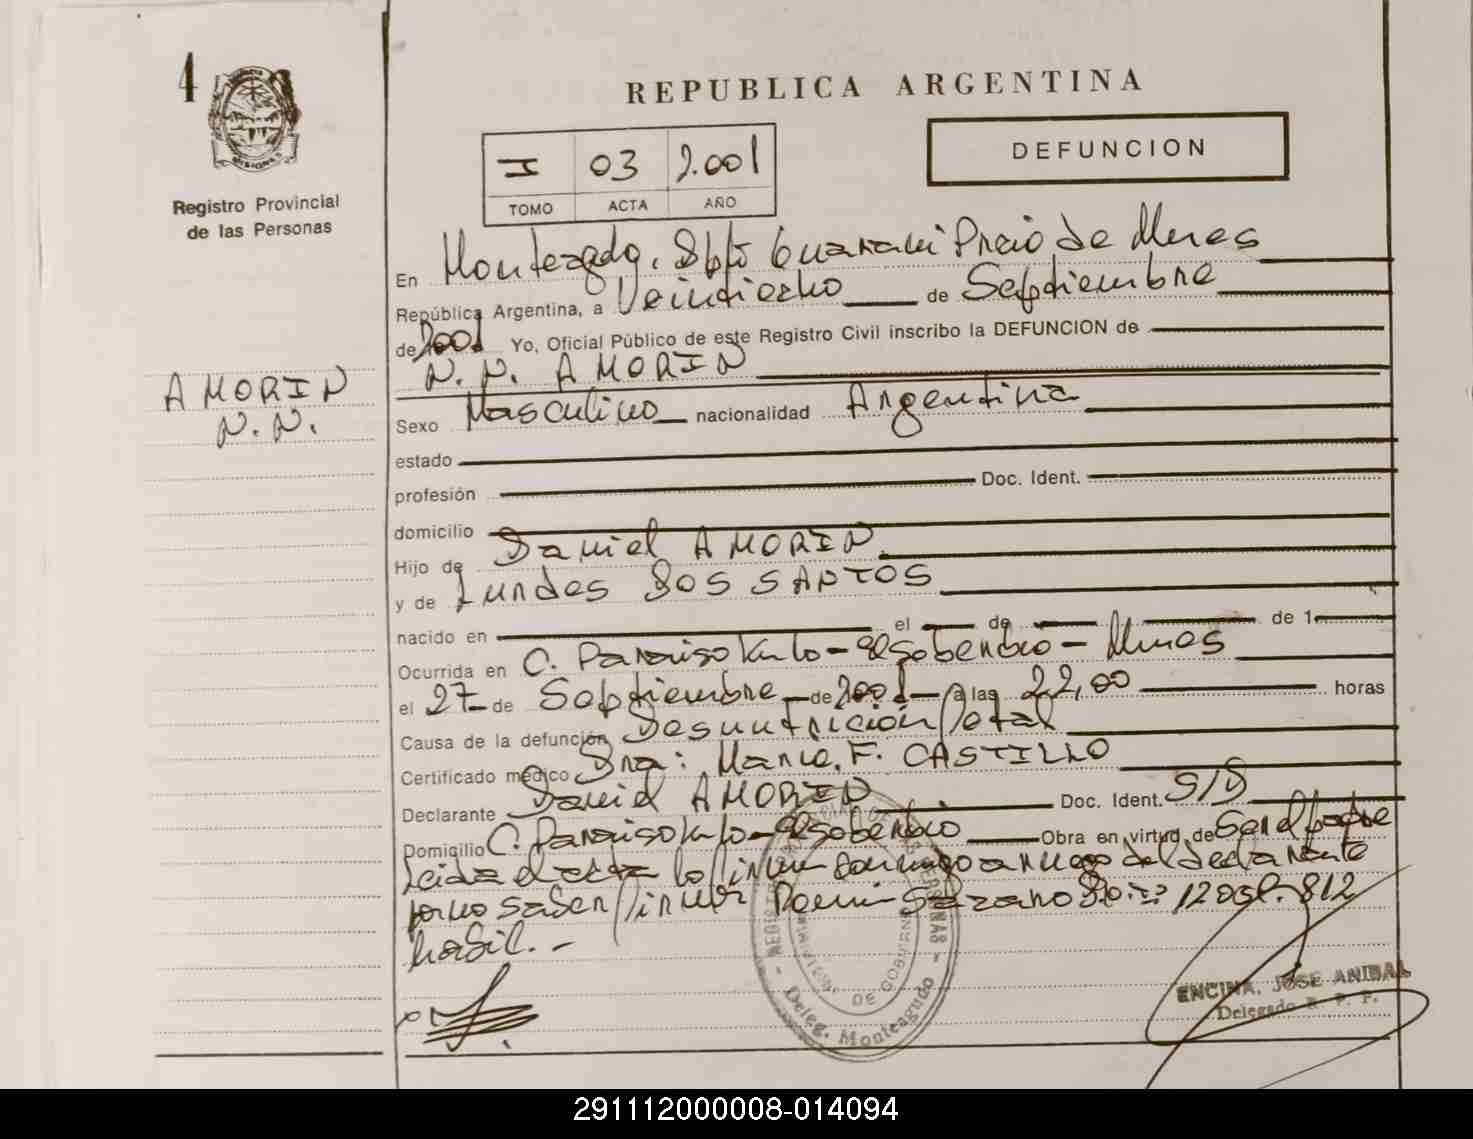 4
REPUBLICA ARGENTINA
DEFUNCION
I 03 2.001
TOMO ACTA AÑO
Registro Provincial
de las Personas
En Monteagdo, Guarani de Mnes
República Argentina, a Veintiocho de Septiembre
de 2001 Yo, Oficial Público de este Registro Civil inscribo la DEFUNCION de
N.N. AMORIN
AMORIN
N.N.
Sexo Masculino nacionalidad Argentina
estado
profesión Doc. Ident.
domicilio
Hijo de Daniel AMORIN
y de Lurdes DOS SANTOS
nacido en el de de 1
Ocurrida en C. Paraiso - El Soberbio - Mnes
el 27 de Septiembre de 2001 a las 22,00 horas
Causa de la defunción Desnutrición fetal
Certificado médico Dra: Maria. F. CASTILLO
Declarante Daniel AMORIN Doc. Ident. S/D
Domicilio C. Paraiso - El Soberbio Obra en virtud de Ser el padre
Leida el acta lo firma a ruego del declarante
por no saber firmar
ENCINA, JOSE ANIBAL
Delegado R. P. P.
REGISTRO PROVINCIAL DE LAS PERSONAS
MINISTERIO DE GOBIERNO
Deleg. Monteagudo
291112000008-014094